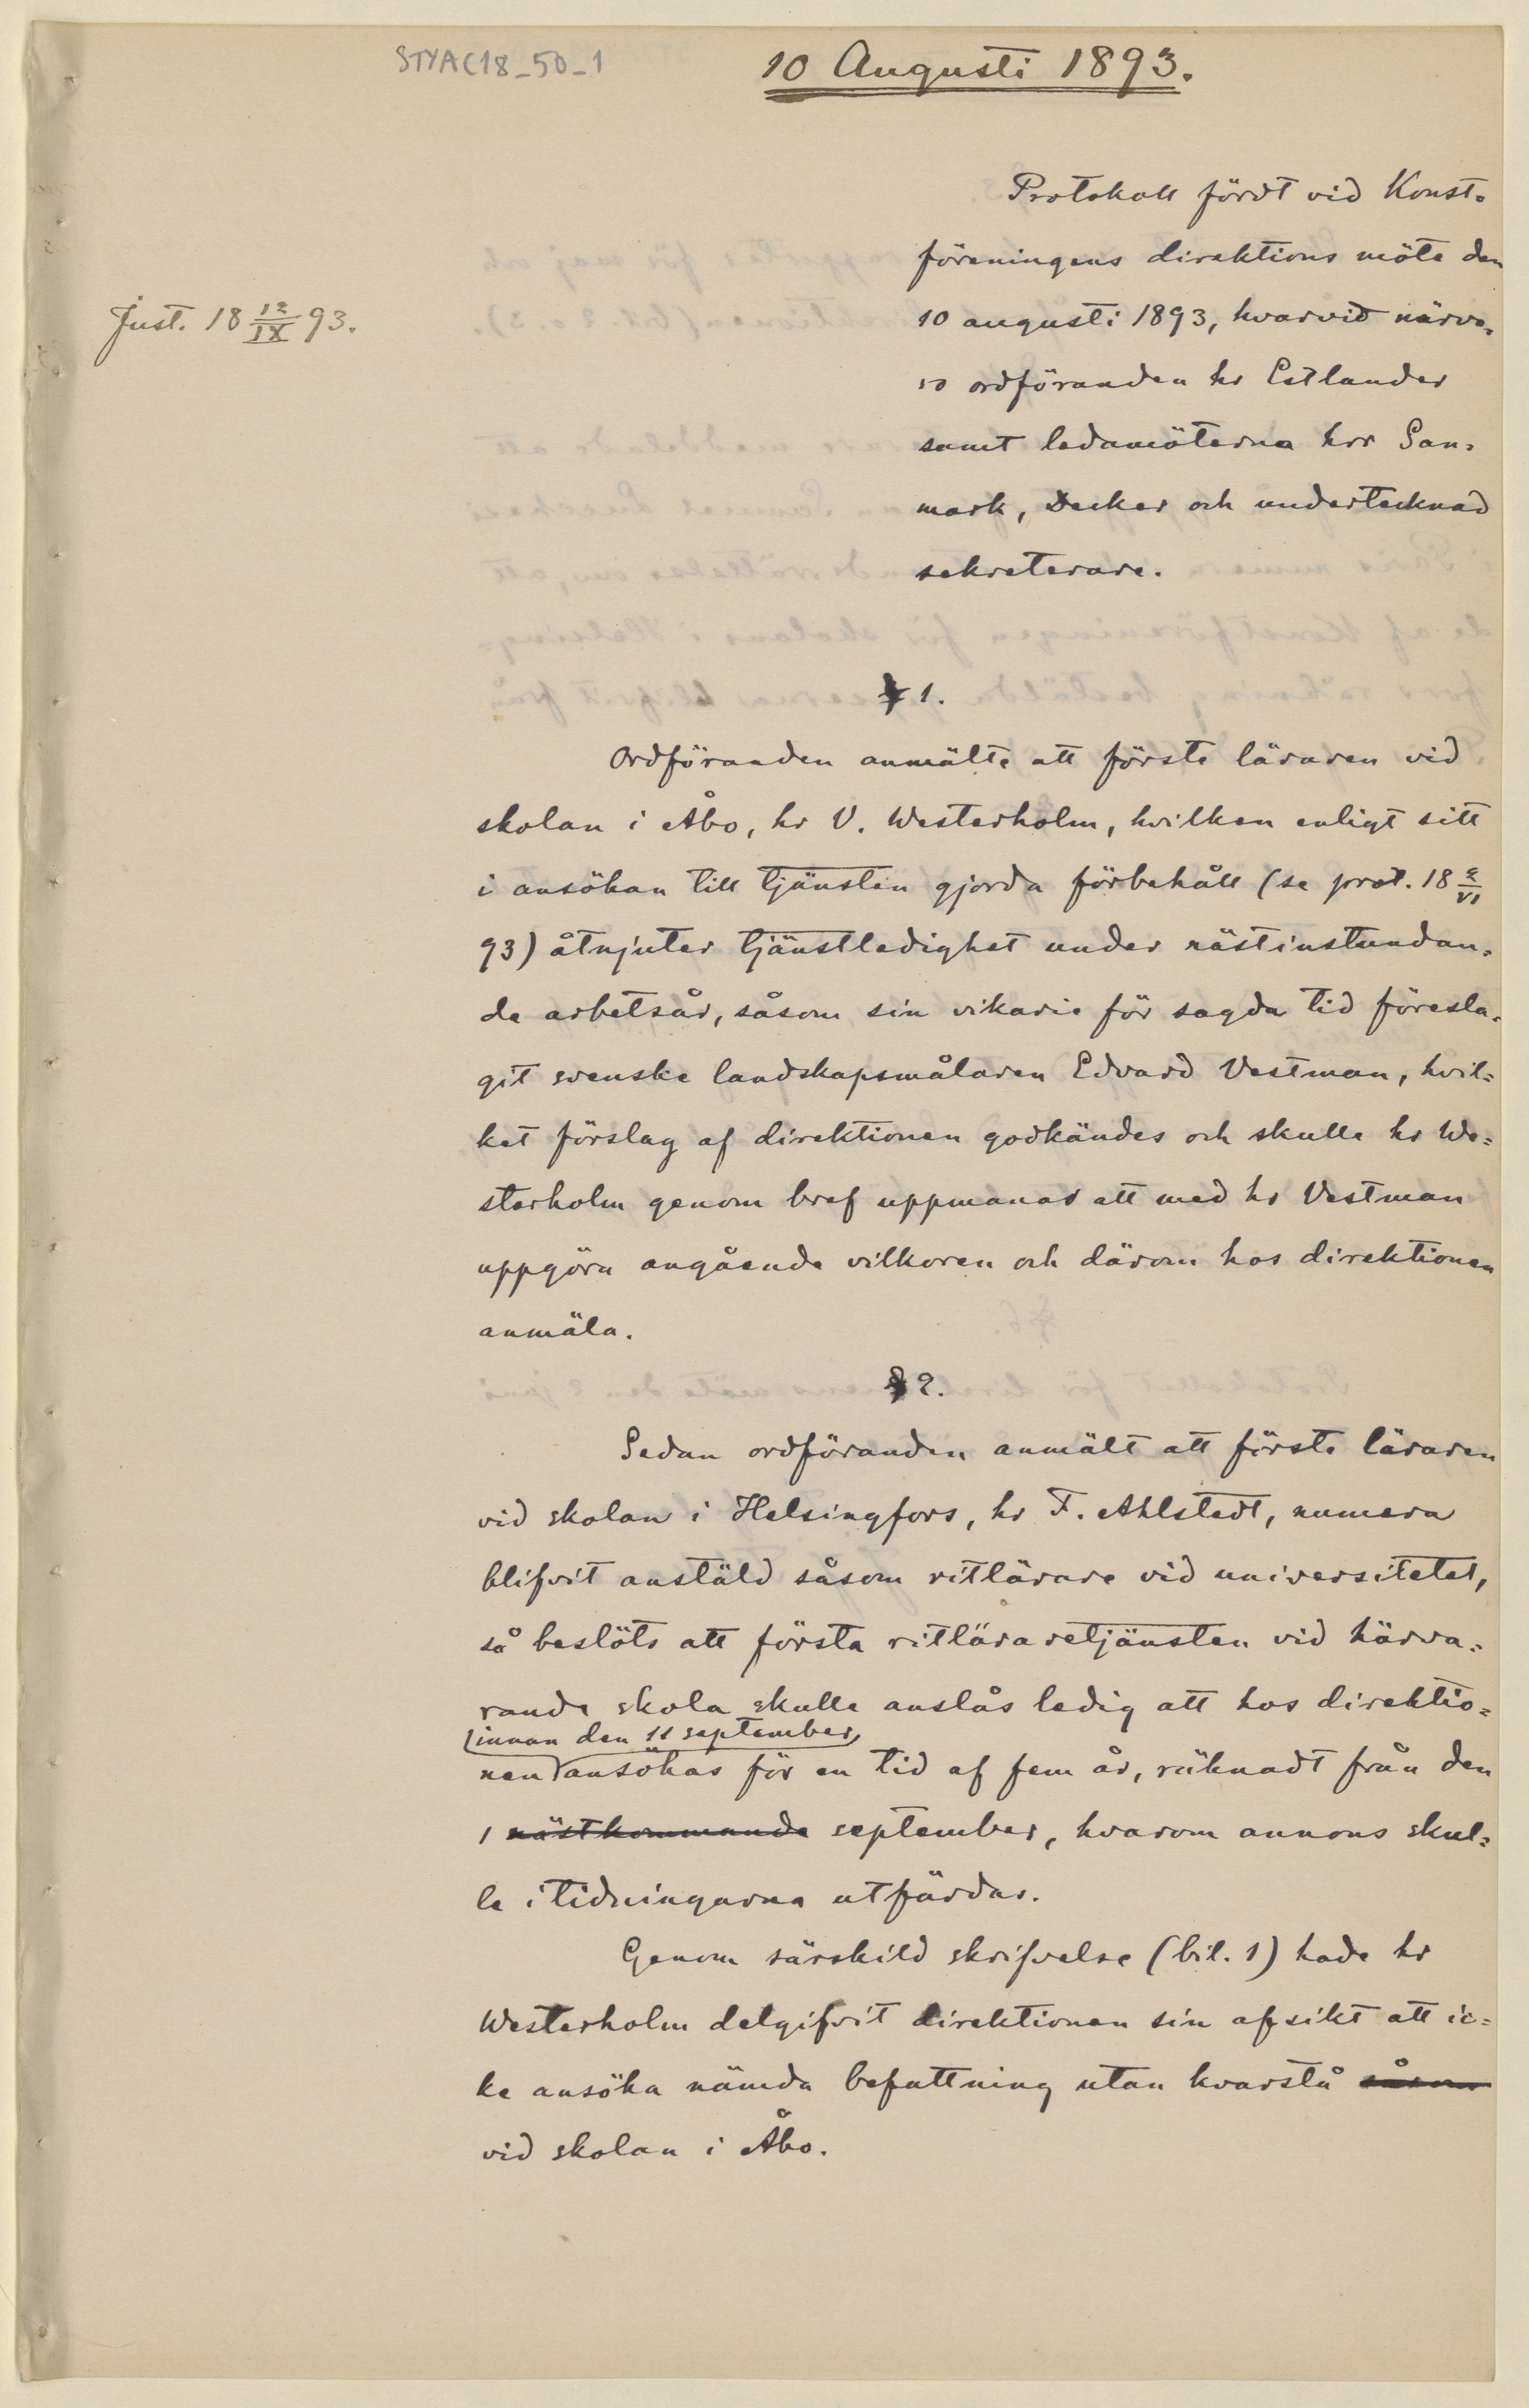 STYAC18_50_1
10 Augusti 1893.
Just. 18 12/IX 93.
Protokoll fördt vid Konst=
föreningens direktions möte den
10 augusti 1893, hvarvid närva=
ro ordföranden hr Estlander
samt ledamöterna hrr San=
mark, Decker och undertecknad
sekreterare.
§ 1.
Ordföranden anmälte att förste läraren vid
skolan i Åbo, hr V. Westerholm, hvilken enligt sitt
i ansökan till tjänsten gjorda förbehåll (se prot. 18 2/VI
93) åtnjuter tjänstledighet under nästinstundan=
de arbetsår, såsom sin vikarie för sagda tid föresla=
git svenske landskapsmålaren Edvard Vestman, hvil=
ket förslag af direktionen godkändes och skulle hr We=
sterholm genom bref uppmanas att med hr Vestman
uppgöra angående vilkoren och därom hos direktionen
anmäla.
§ 2.
Sedan ordföranden anmält att förste läraren
vid skolan i Helsingfors, hr F. Ahlstedt, numera
blifvit anstäld såsom ritlärare vid universitetet,
så beslöts att första ritläraretjänsten vid härva=
rande skola skulle anslås ledig att hos direktio=
innan den 11 september
nen ansökas för en tid af fem år, räknadt från den
1 nästkommande september, hvarom annons skul=
le i tidningarna utfärdas.
Genom särskild skrifvelse (bil. 1) hade hr
Westerholm delgifvit direktionen sin afsikt att ic=
ke ansöka nämda befattning utan kvarstå såsom
vid skolan i Åbo.